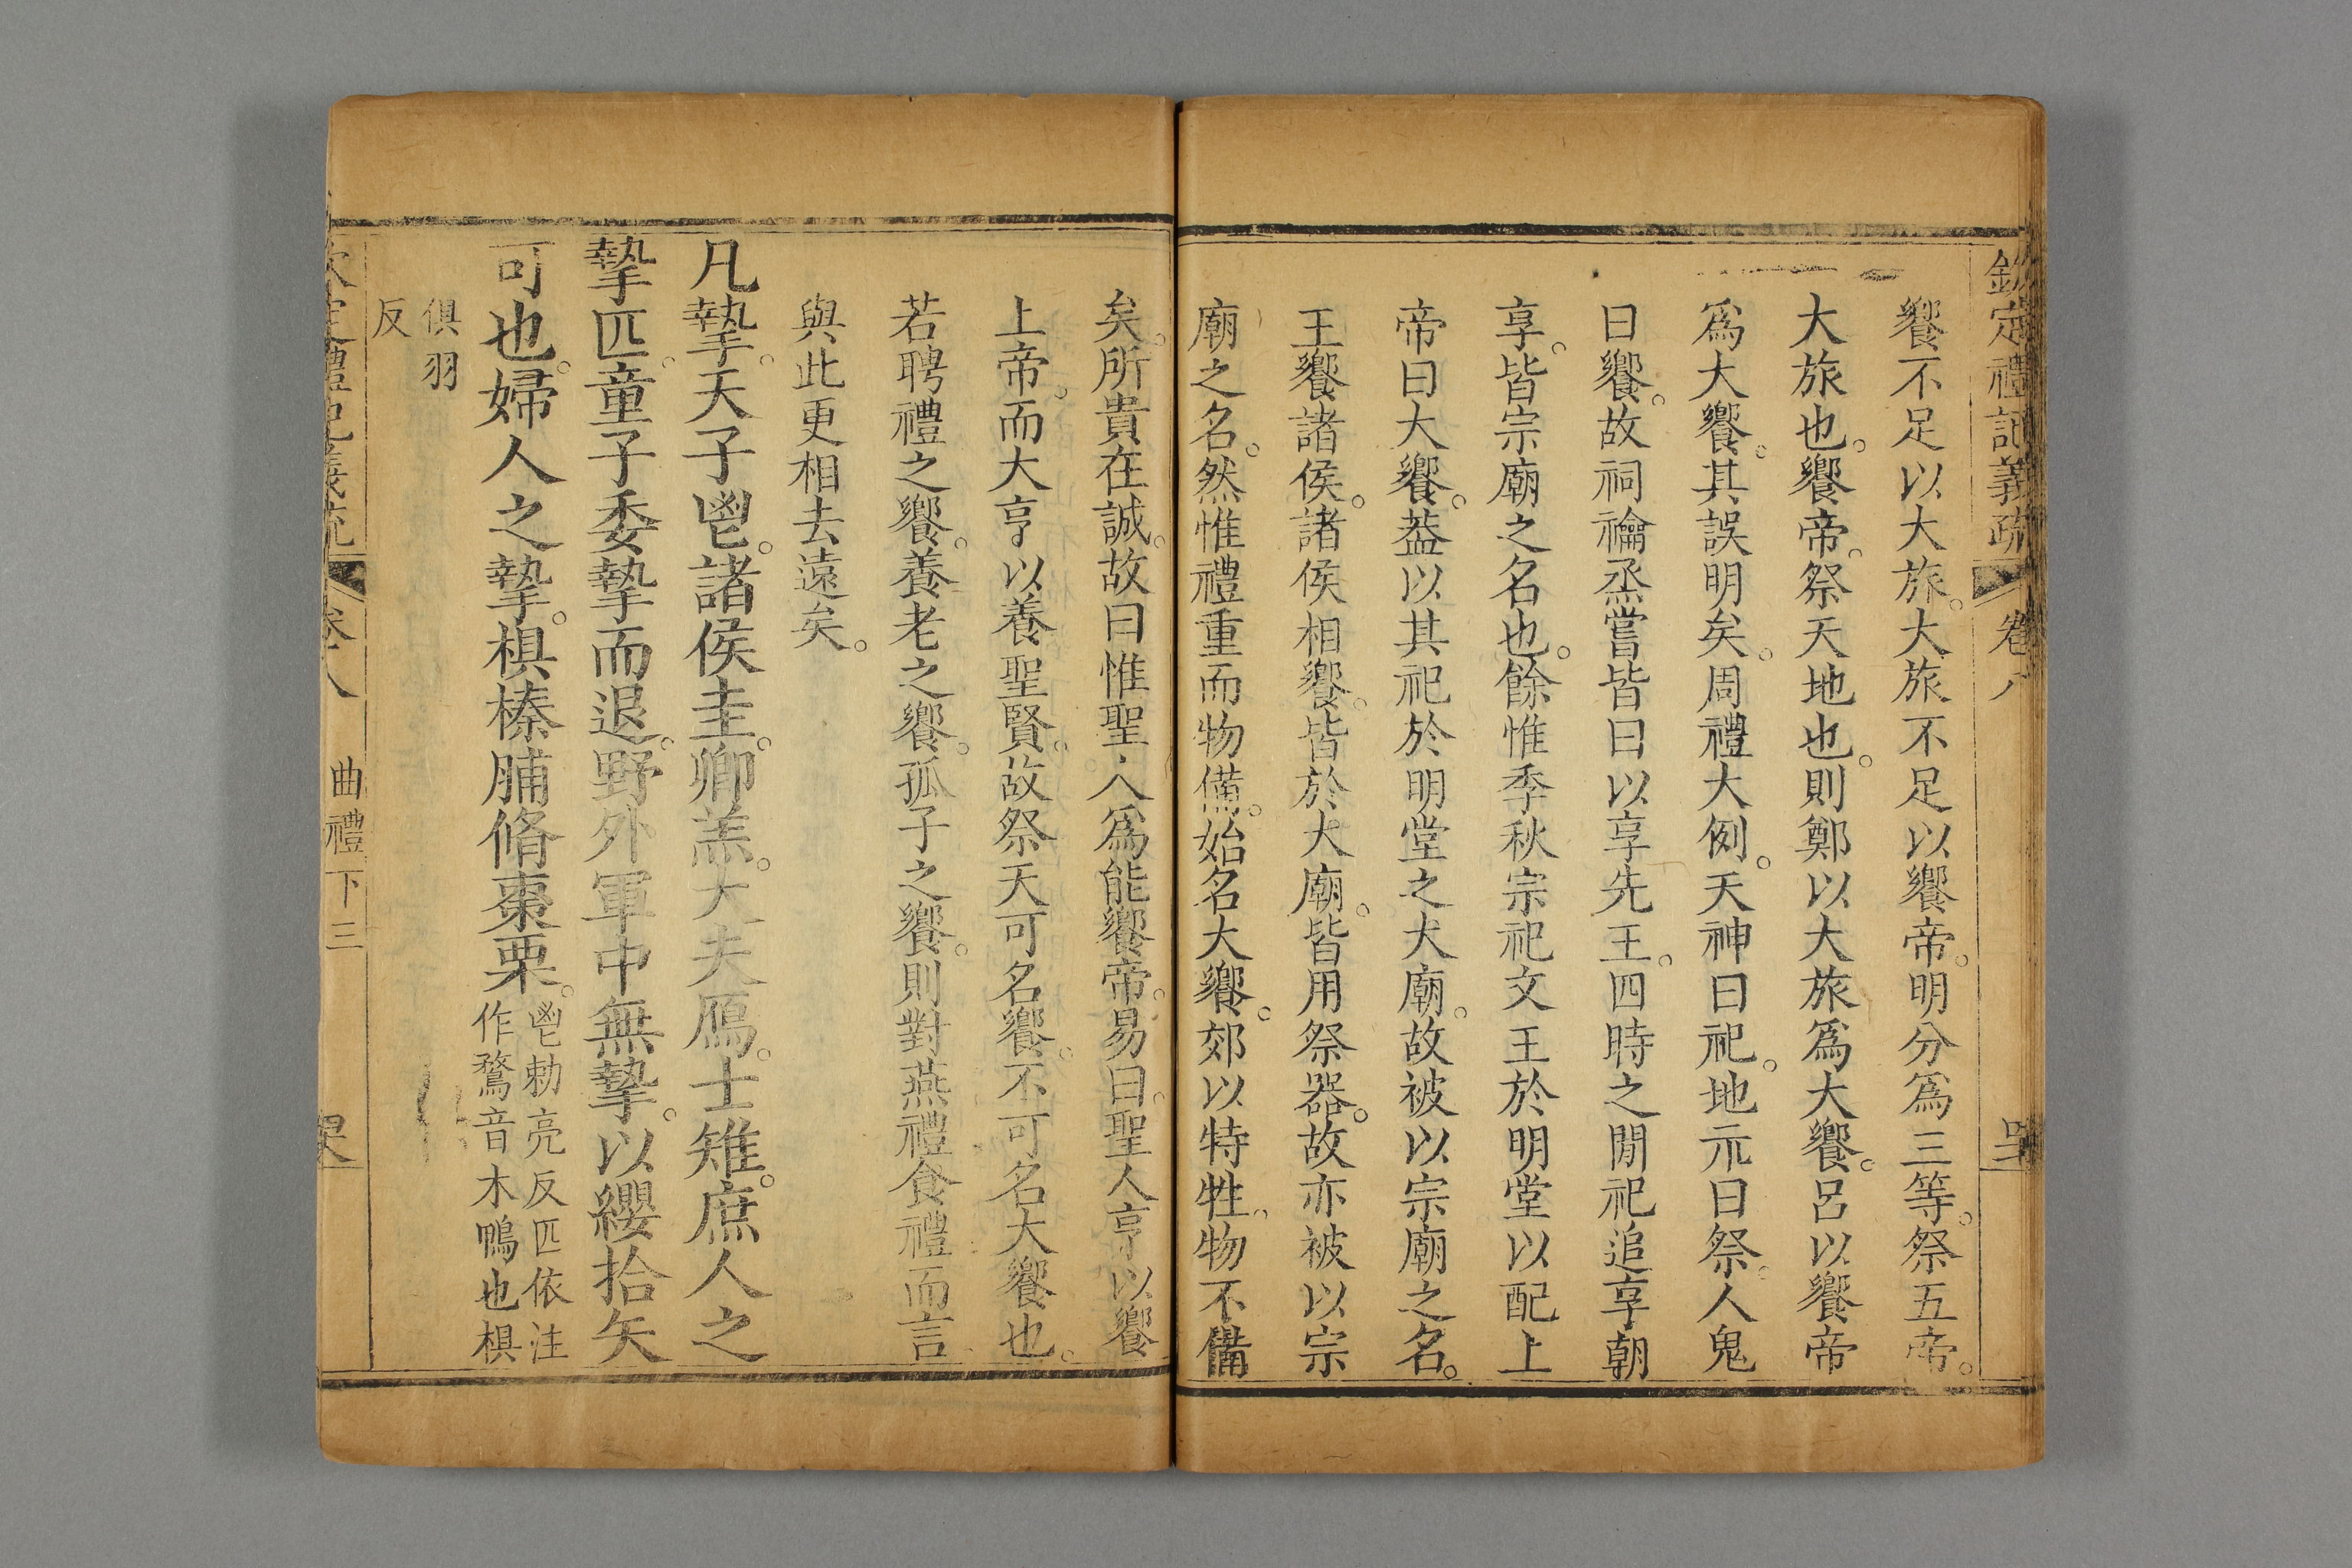 欽定禮記義疏 卷八
饗不足以大旅。大旅不足以饗帝。明分爲三等。祭五帝。
大旅也。饗帝。祭天地也。則鄭以大旅爲大饗。呂以饗帝
爲大饗。其誤明矣。周禮大例。天神曰祀。地示曰祭。人鬼
曰饗。故祠禴烝嘗皆曰以享先王。四時之閒祀追享朝
享。皆宗廟之名也。餘惟季秋宗祀文王於明堂以配上
帝曰大饗。葢以其祀於明堂之大廟。故被以宗廟之名。
王饗諸侯。諸侯相饗。皆於大廟。皆用祭器。故亦被以宗
廟之名。然惟禮重而物備。始名大饗。郊以特牲。物不備
矣。所貴在誠。故曰惟聖人爲能饗帝。易曰。聖人亨以饗
上帝。而大亨以養聖賢。故祭天可名饗。不可名大饗也。
若聘禮之饗。養老之饗。孤子之饗。則對燕禮食禮而言
與此更相去遠矣。
凡摯。天子鬯。諸侯圭。卿羔。大夫鴈。士雉。庶人之
摯匹。童子委摯而退。野外軍中無摯。以纓拾矢
可也。婦人之摯。椇榛脯脩棗栗。
鬯勅亮反匹依注
作鶩音木鴨也椇
俱羽
反
欽定禮記義疏 卷八 曲禮下三